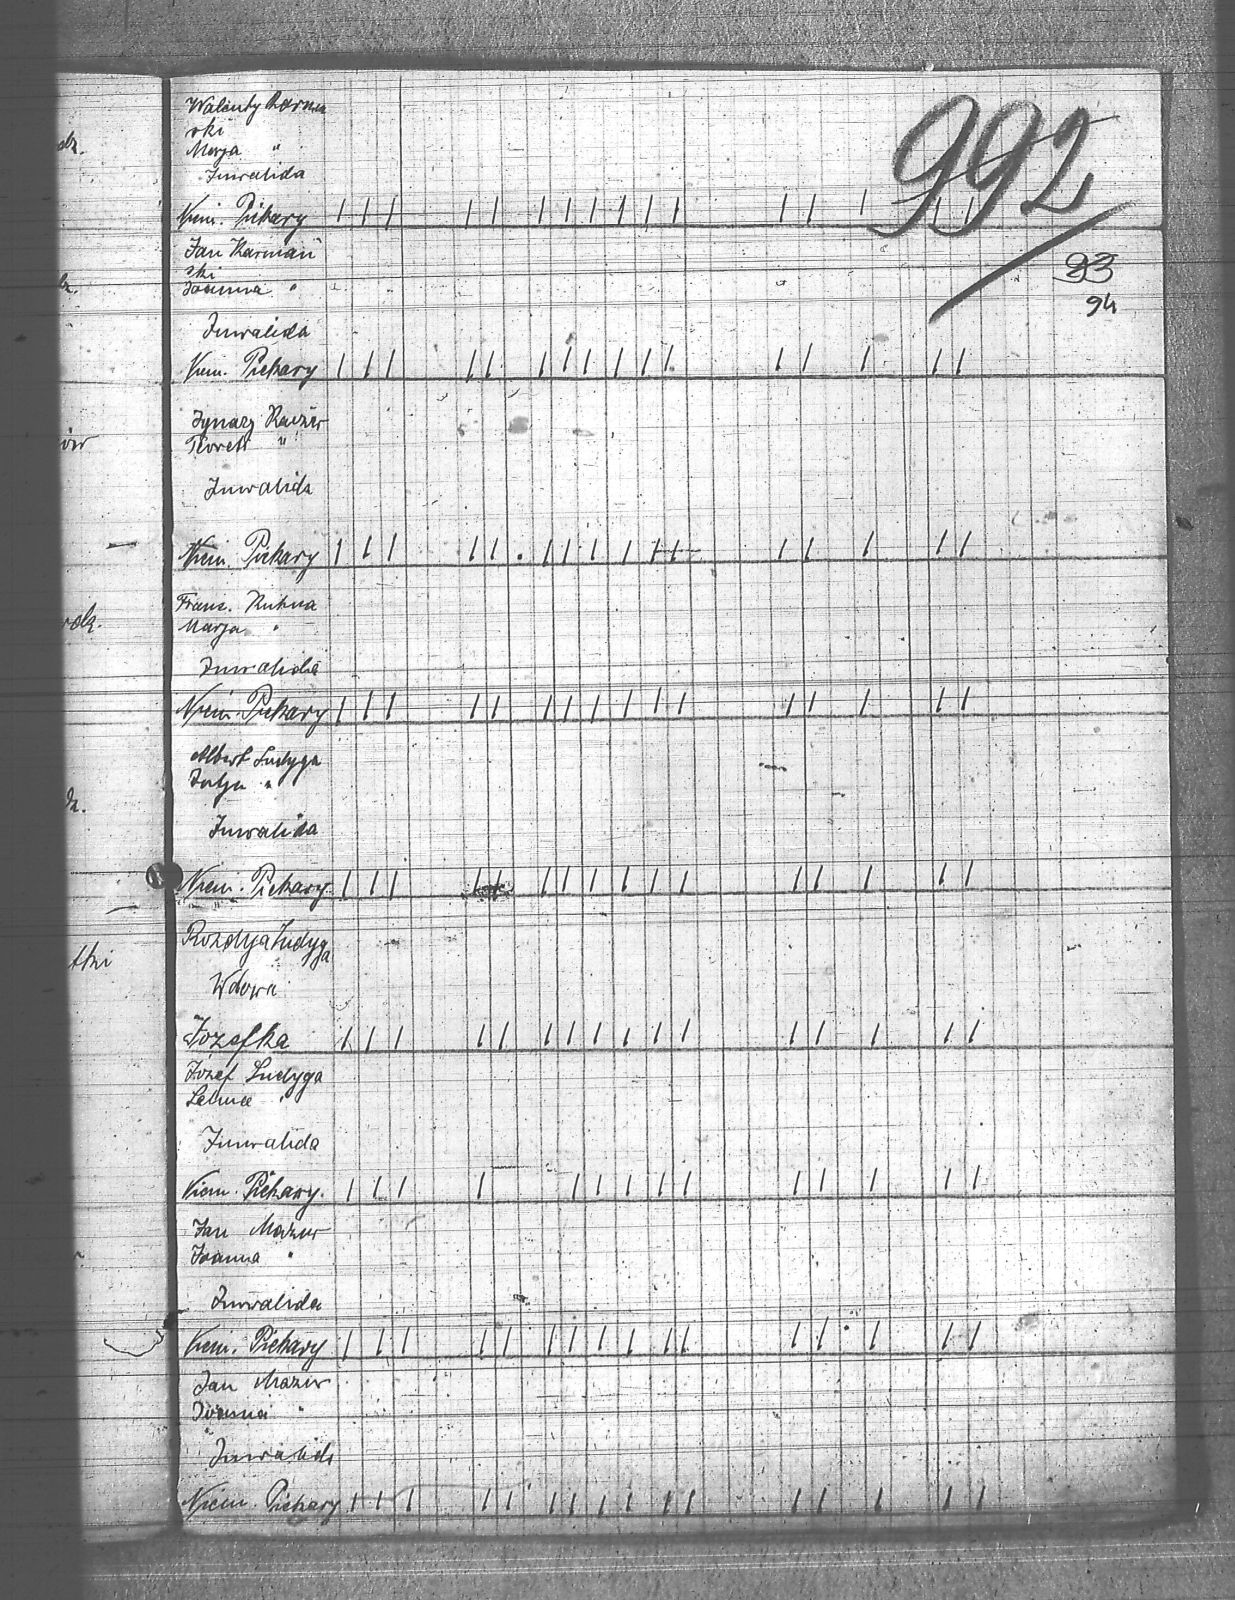 992
93
94
Walenty Karmań
ski
Marja "
Inwalida
Niem. Piekary
Jan Karmań
ski
Joanna "
Inwalida
Niem. Piekary
Ignacy
"
Inwalida
Niem. Piekary
Franz. Kuhna
Marja "
Inwalida
Niem. Piekary
Albert Ludyga
Julja "
Inwalida
Niem. Piekary
Ludyga
Wdowa
Józefka
Józef Ludyga
"
Inwalida
Niem. Piekary.
Jan Mazur
Joanna "
Inwalida
Niem. Piekary
Jan Mazur
Joanna "
Inwalida
Niem. Piekary